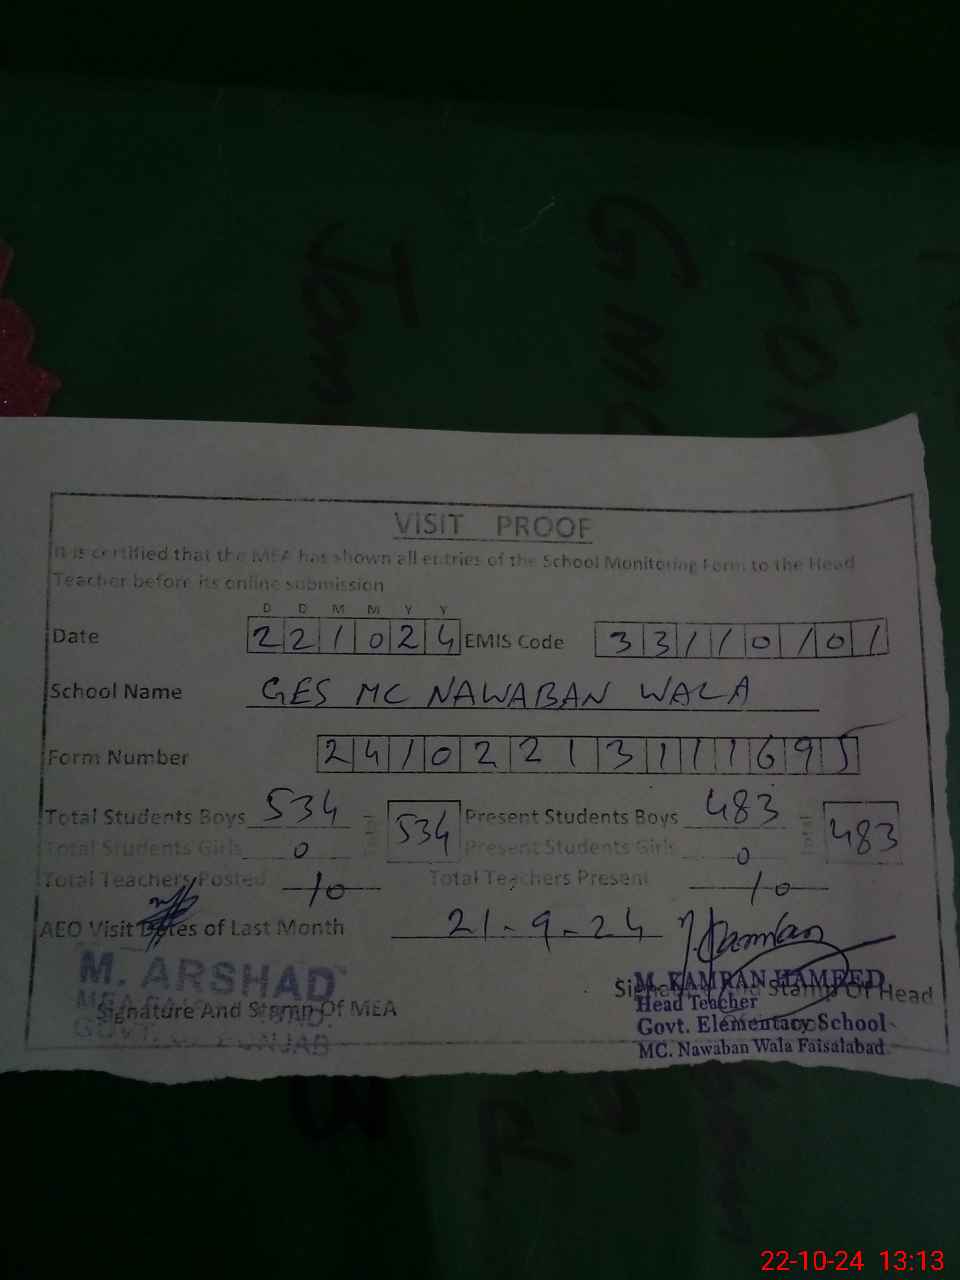 VISIT PROOF
It is certified that the MEA has shown all entries of the School Monitoring Form to the Head
Teacher before its online submission
D D M M Y Y
Date 221024 EMIS Code 33110101
School Name GES MC NAWABAN WALA
Form Number 24102213111695
Total Students Boys 534 534 Present Students Boys 483 483
Total Students Girls 0 Present Students Girls 0
Total Teachers Posted 10 Total Teachers Present 10
AEO Visit Dates of Last Month 21-9-24
M. ARSHAD
Signature And Stamp Of MEA
GOVT. PUNJAB
M. KAMRAN HAMEED
And Stamp Of Head
Head Teacher
Govt. Elementary School
MC. Nawaban Wala Faisalabad
22-10-24 13:13